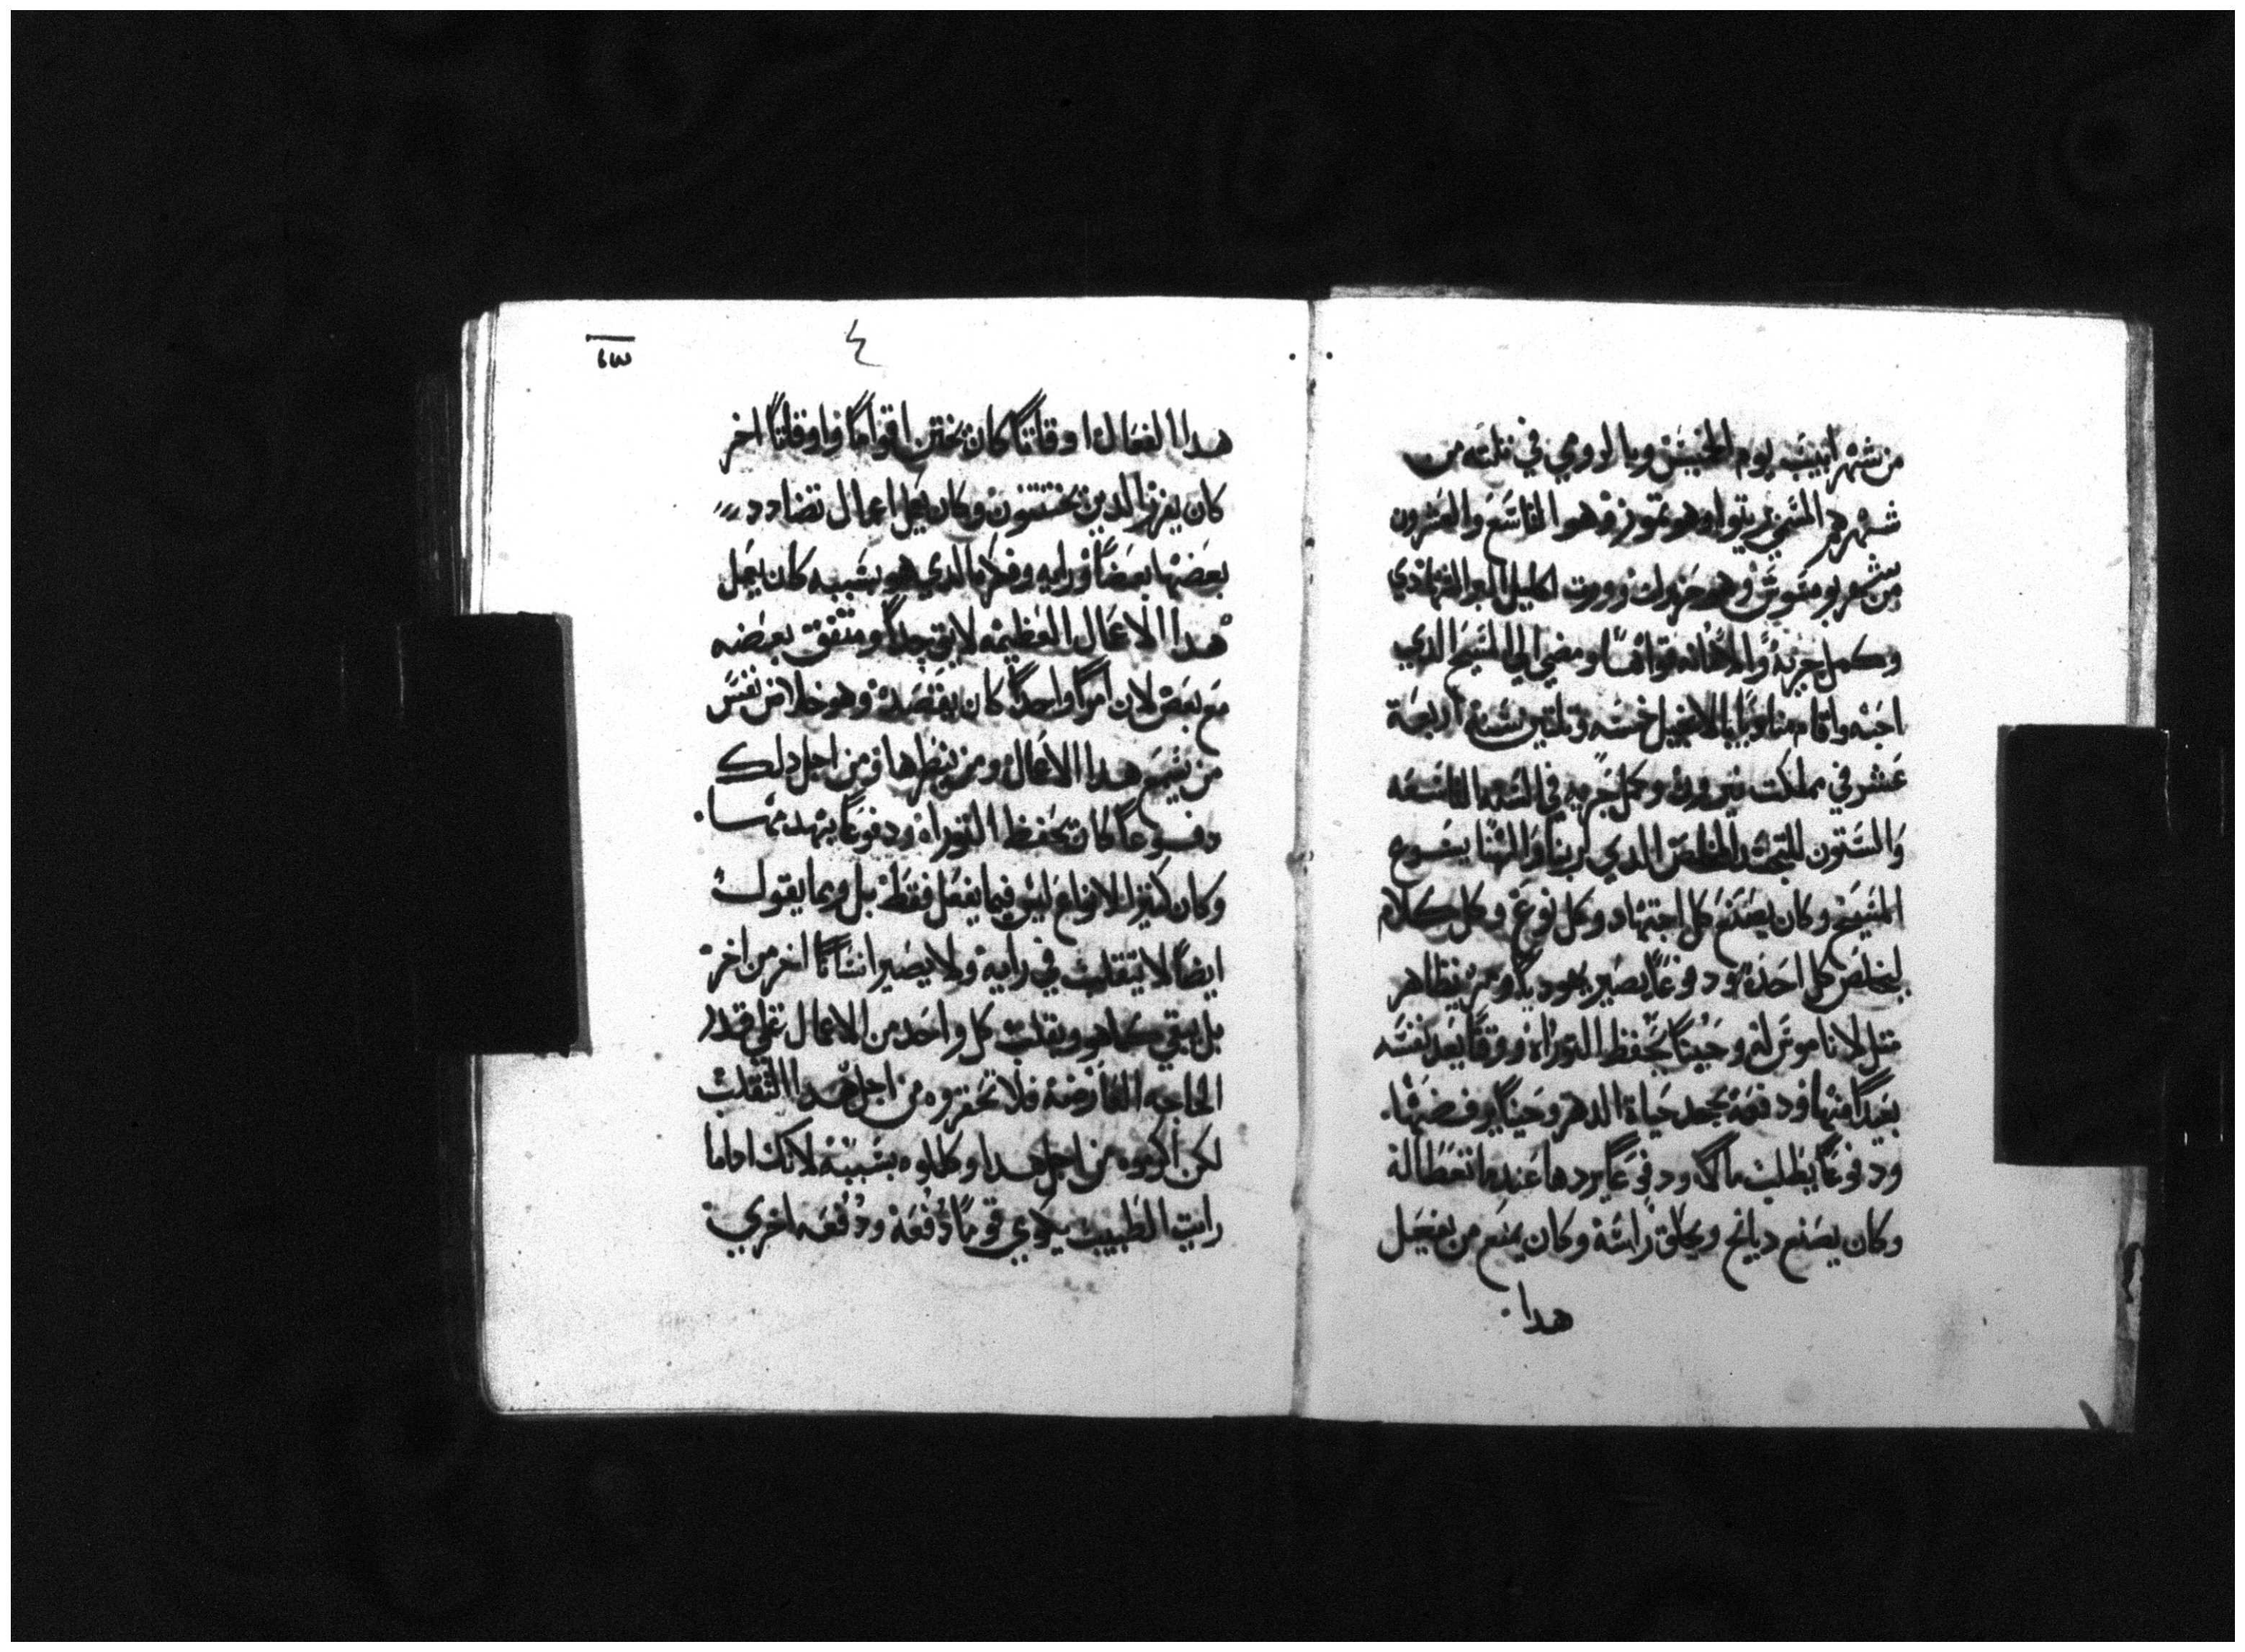 من شهر ابيب يوم الخميس وبالرومي في تلته من
شهرهم المسمي وهو تموز وهو التاسع والعشرون
من شهر وهو حزيران وورت اكليل الشهاده
وكمل جريه والامانه ومضي الي المسيح الدي
احبه واقام مناديا بالانجيل خمسه وتلتين سنه اربعة
عشر في مملكت نيرون وكمل جريه في السنه التاسعه
والستون للتجسد المخلص الدي لربنا والهنا يسوع
المسيح وكان يصنع كل اجتهاد وكل نوع وكل كلام
ليخلص كل احد ودفوعا يصير يهوديا ومره يتظاهر
متل لا ناموس له وحينا يحفظ التوراه ووقتا يعد نفسه
بعيدا منها ودفعه يجعد حياة الدهر وحينا يرفضها.
ودفوعا يطلب مالا ودفوعا يردها عندما تعطا له
وكان يصنع دبايح ويحلق راسه وكان يمنع من يفعل
هدا.
٤
١٣
هدا الفعال اوقاتا كان يختن اقواما واوقاتا اخر
كان يفرز الدين يختتنون وكان يعمل اعمال تضادد
بعضها بعضا ورايه وفكره الدي هو بسببه كان يعمل
هدا الاعمال العظيمه لايق جدا ومتفق بعضه
مع بعض لان امرا واحدا كان يقصده وهو خلاص نفس
من يسمع هدا الاعمال ومن ينظرها ومن اجل دلك
دفوعا كان يحفظ التوراه ودفوعا يهدمها.
وكان كتير الانواع ليس فيما يفعل فقط بل وبما يقول
ايضا لا يتقلب في رايه ولا يصير انسانا اخر من اخر
بل يبقي كما هو ويقلب كل واحد من الاعمال علي قدر
الحاجه العارضه فلا تحقروه من اجل هدا التقلب
لكن اكرموه من اجل هدا وكللوه بسببه لانك اداما
رايت الطبيب يداوي قوما دفعه ودفعه اخري